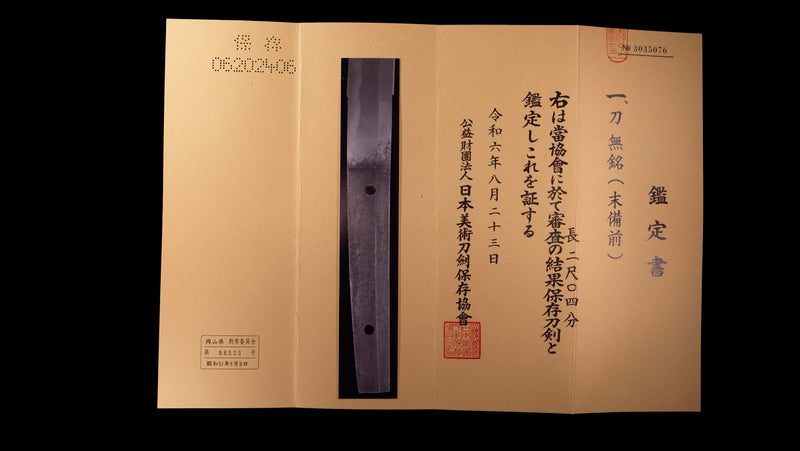 № 3035076
鑑定書
一、刀 無銘(末備前)
長 二尺〇四分
右は當協會に於て審査の結果保存刀剣と
鑑定しこれを証する
令和六年八月二十三日
公益財團法人 日本美術刀劍保存協會
保存
06202406
岡山県 教育委員会
第 88523 号
昭和51年9月8日